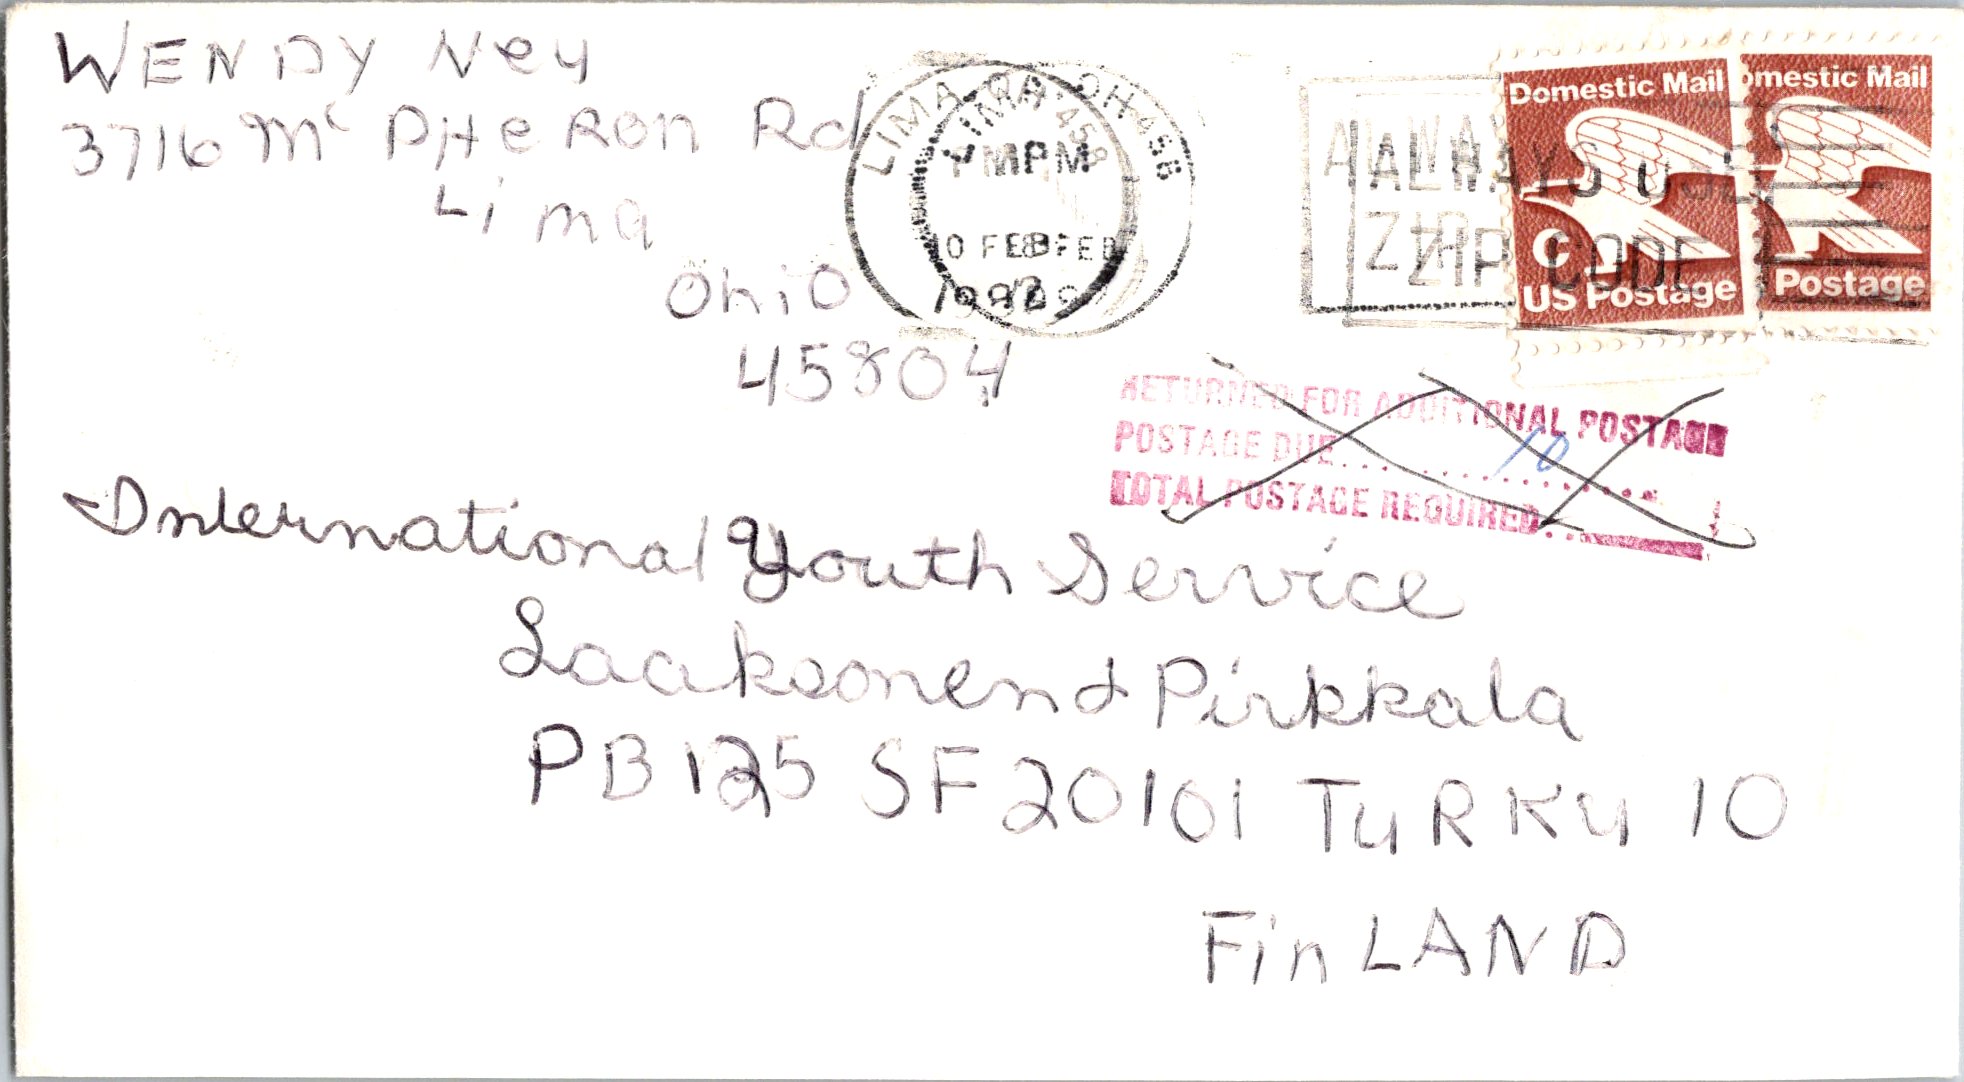 WENDY Ney
3716 Mc PHeRon Rd
Lima
Ohio
45804
LIMA, OH 458
PM
FEB
1982
ALWAYS USE
ZIP CODE
Domestic Mail
C
US Postage
Domestic Mail
Postage
RETURNED FOR ADDITIONAL POSTAGE
POSTAGE DUE............10
TOTAL POSTAGE REQUIRED
International Youth Service
Laaksonen & Pirkkala
PB 125 SF 20101 TuRKu 10
FinLAND